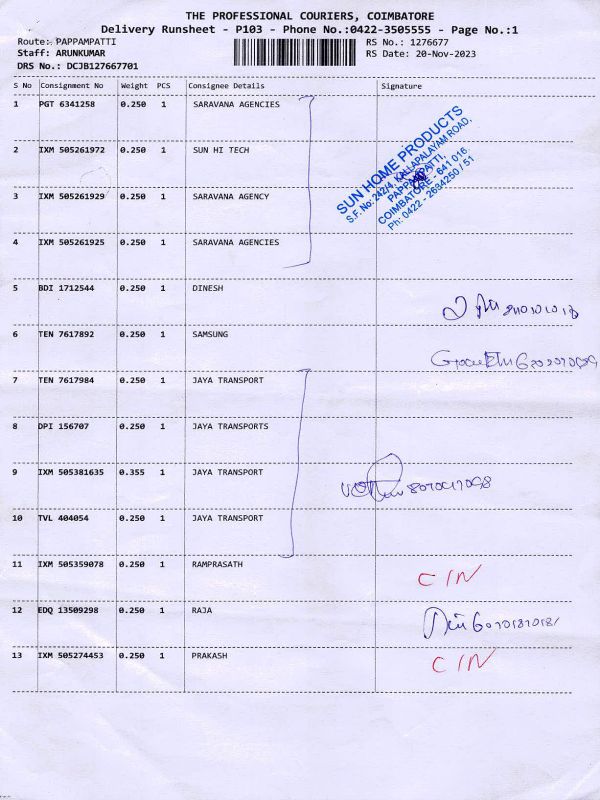 THE PROFESSIONAL COURIERS, COIMBATORE
Delivery Runsheet - P103 - Phone No.:0422-3505555 - Page No.:1
Route: PAPPAMPATTI RS No.: 1276677
Staff: ARUNKUMAR RS Date: 20-Nov-2023
DRS No.: DCJB127667701
S No Consignment No Weight PCS Consignee Details Signature
1 PGT 6341258 0.250 1 SARAVANA AGENCIES
2 IXM 505261972 0.250 1 SUN HI TECH
3 IXM 505261929 0.250 1 SARAVANA AGENCY
4 IXM 505261925 0.250 1 SARAVANA AGENCIES
SUN HOME PRODUCTS
S.F. No: 242/4, KALLAPALAYAM ROAD,
PAPPAMPATTI,
COIMBATORE - 641 016.
Ph: 0422 - 2634250 / 51
5 BDI 1712544 0.250 1 DINESH
6 TEN 7617892 0.250 1 SAMSUNG
7 TEN 7617984 0.250 1 JAYA TRANSPORT
8 DPI 156707 0.250 1 JAYA TRANSPORTS
9 IXM 505381635 0.355 1 JAYA TRANSPORT
10 TVL 404054 0.250 1 JAYA TRANSPORT
11 IXM 505359078 0.250 1 RAMPRASATH CIN
12 EDQ 13509298 0.250 1 RAJA
13 IXM 505274453 0.250 1 PRAKASH CIN